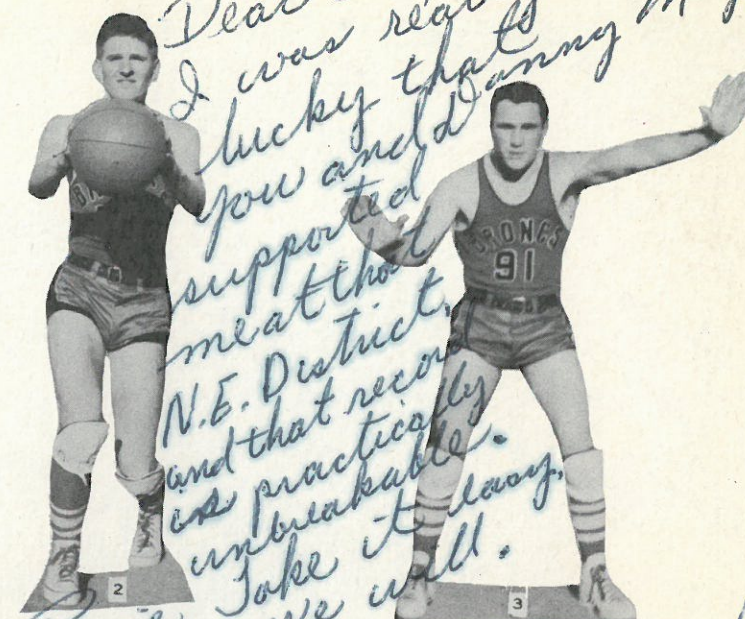 Dear
I was
lucky that
you and Danny
supported
me at that
N.E. District,
and that record
is practically
unbreakable.
Take it easy,
will.
BRONCS
91
2
3